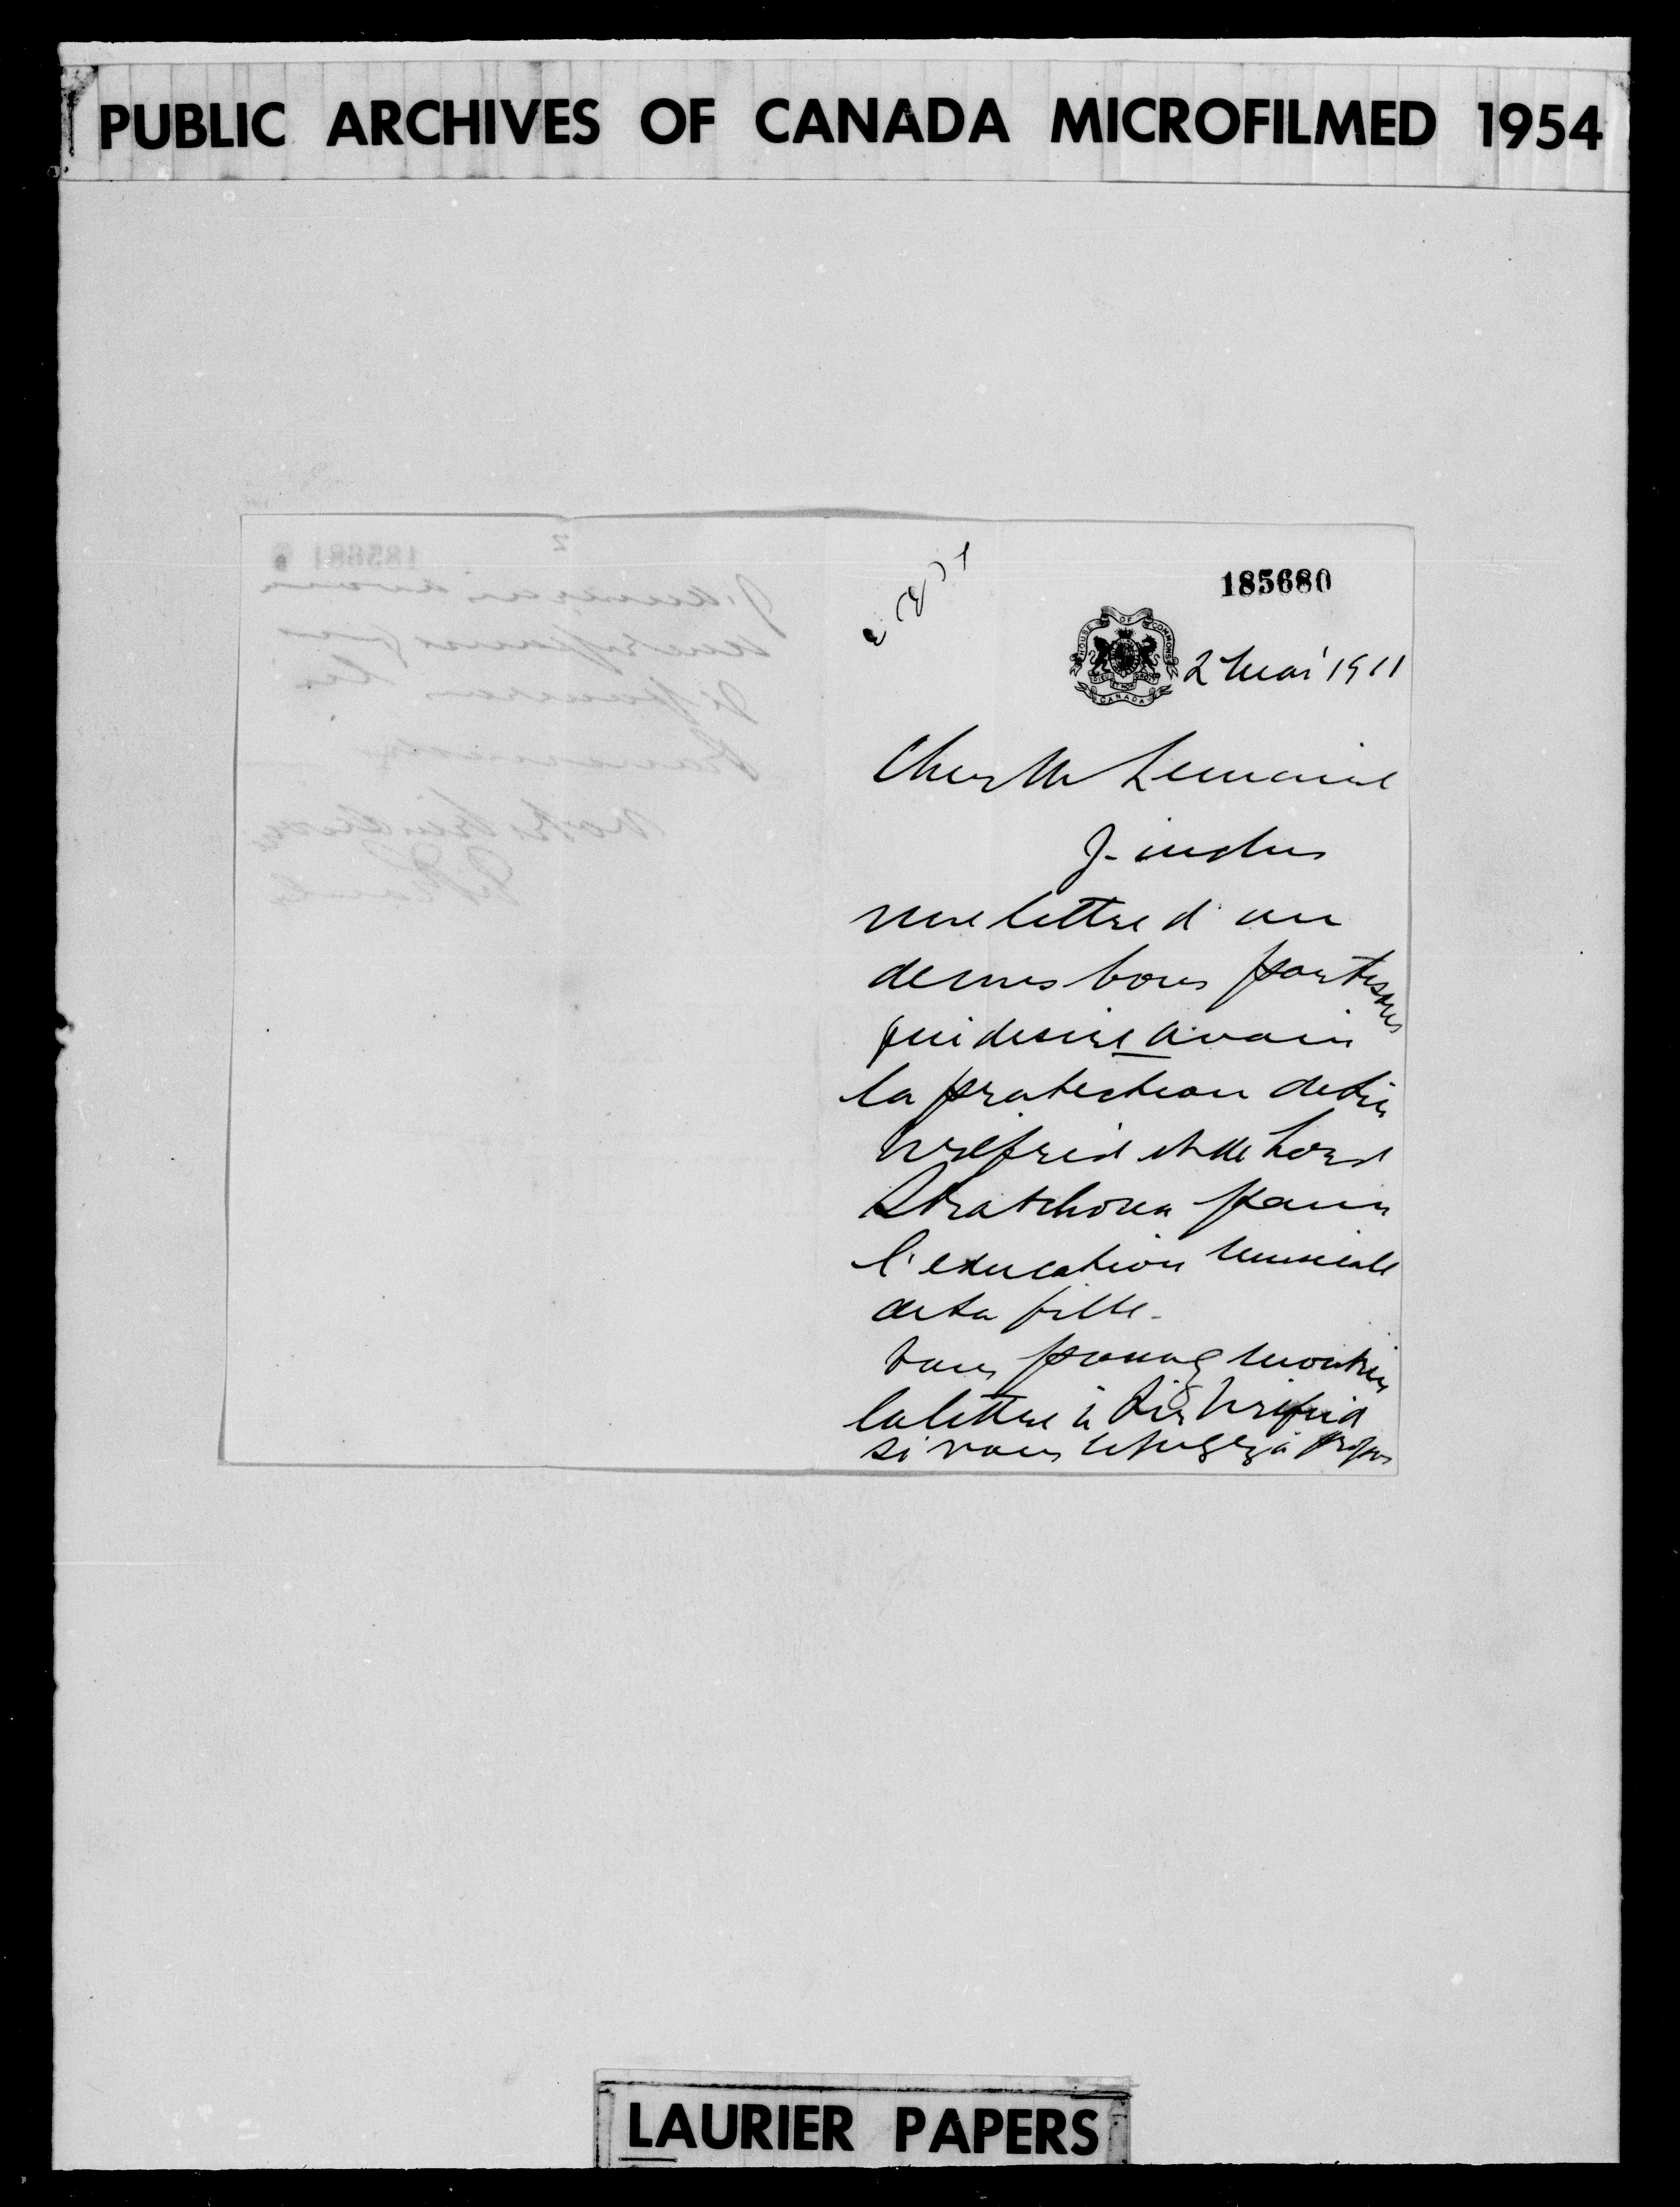 PUBLIC ARCHIVES OF CANADA MICROFILMED 1954
185680
HOUSE OF COMMONS
CANADA
2 Mai 1911
Cher Mr Lemaire
J'inclus
une lettre d'un
de mes bons partisans
qui desire avoir
la protection de Sir
Wilfrid et de Lord
Strathcona pour
l'education musicale
de sa fille.
Vous pouvez montrer
la lettre à Sir Wilfrid
si vous le jugez à propos
185681
2
J'aimerais avoir
une reponse
Votre bien devoué
LAURIER PAPERS